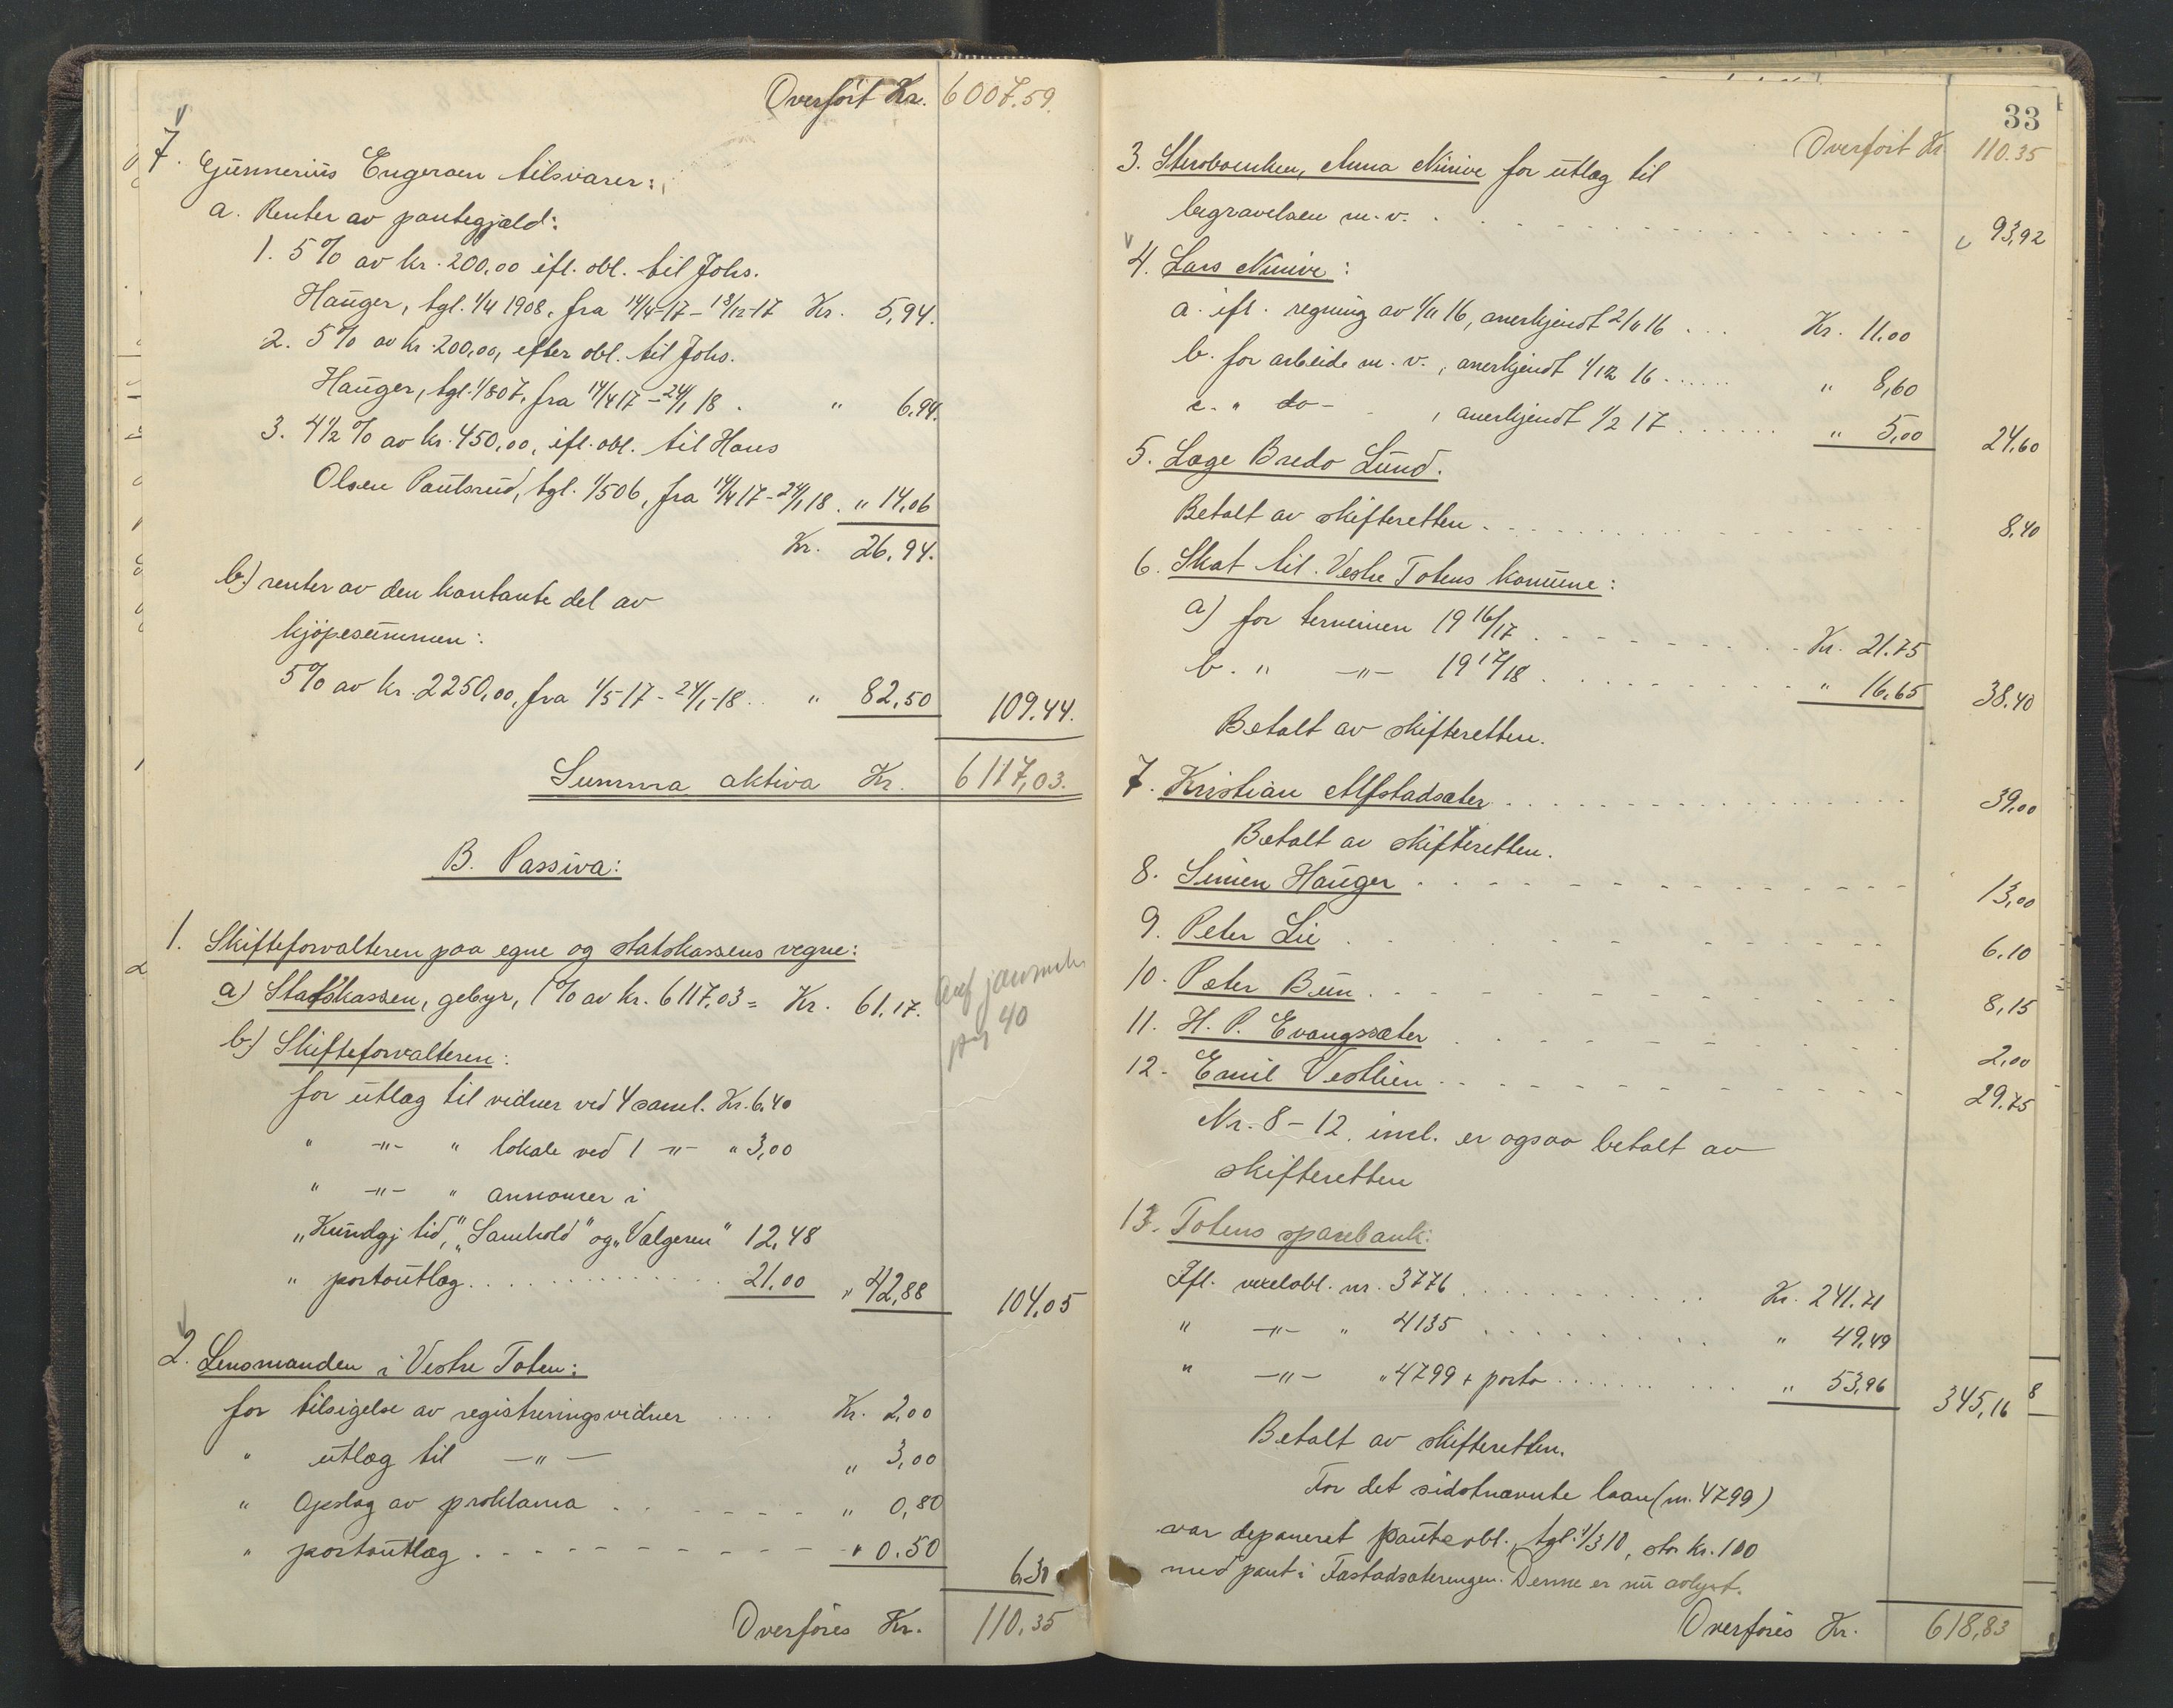 Overført Kr. 6007.59.
7. Gunnerius Engeraen tilsvarer:
a. Renter av pantegjæld:
1. 5 % av kr. 200,00 ifl. obl. til Johs.
Hauger, tgl. 1/4 1908, fra 14/4-17 - 18/12-17 Kr. 5,94.
2. 5 % av kr. 200,00, efter obl. til Johs.
Hauger, tgl. 1/8 07, fra 14/4 17 - 24/1 18 . " 6,94.
3. 4 1/2 % av kr. 450,00, ifl. obl. til Hans
Olsen Paulsrud, tgl. 1/5 06, fra 14/4 17 - 24/1 18 . " 14,06
Kr. 26,94.
b.) renter av den kontante del av
kjøpesummen:
5 % av kr. 2250,00, fra 1/5-17 - 24/1-18 .. " 82,50 109.44.
Summa aktiva Kr. 6117,03.
B. Passiva:
1. Skifteforvalteren paa egne og statskassens vegne:
a) Statskassen, gebyr, 1 % av kr. 6117.03 = Kr. 61,17.
pag 40
b.) Skifteforvalteren:
for utlæg til vidner ved 4 saml. Kr. 6,40
" -"- " lokale ved 1 -"- " 3,00
" -"- " annonser i
"Kundgj. tid," "Samhold" og "Velgeren" 12,48
" portoutlæg . . . . . 21,00 " 42,88 104,05
2. Lensmanden i Vestre Toten:
for tilsigelse av registreringsvidner .... Kr. 2,00
" utlæg til -"- " 3,00
" Opslag av proklama . . . . " 0,80
" portoutlæg . . . . . " 0.50 6,30
Overføres Kr. 110,35
33
Overført Kr 110.35
3. Sterboenken, Anna Ninive for utlæg til
begravelsen m. v. . . . . . 93,92
4. Lars Ninive:
a. ifl. regning av 1/11 16, anerkjendt 2/11 16 ... Kr. 11,00
b. for arbeide m. v., anerkjendt 1/12 16 ...... " 8,60
c. " do - , anerkjendt 1/2 17 ...... " 5,00 24,60
5. Læge Bredo Lund.
Betalt av skifteretten . . . . . 8,40
6. Skat til Vestre Totens komune:
a) for terminen 19 16/17 . . . . . Kr. 21.75
b. " -"- 19 17/18 . . . . . " 16,65 38.40
Betalt av skifteretten.
7. Kristian Alfstadsæter . . . . . 39,00
Betalt av skifteretten.
8. Simen Hauger . . . . . 13,00
9. Peter Lie . . . . . 6.10
10. Peter Bun . . . . . 8,15
11. H. P. Evangsæter . . . . . 2,00
12. Emil Vestlien . . . . . 29.75
Nr. 8 - 12. incl. er ogsaa betalt av
skifteretten
13. Totens sparebank:
Ifl. vexelobl. nr. 3776 . . . . . Kr. 241.71
" -"- " 4135 . . . . . " 49,49
" -"- " 4799 + porto ...... " 53,96 345,16
Betalt av skifteretten.
For det sidstnævnte laan (nr. 4799)
var deponeret panteobl., tgl. 1/3 10, stor kr. 100
med pant i Fastadsæterengen. Denne er nu avlyst.
Overføres Kr. 618,83